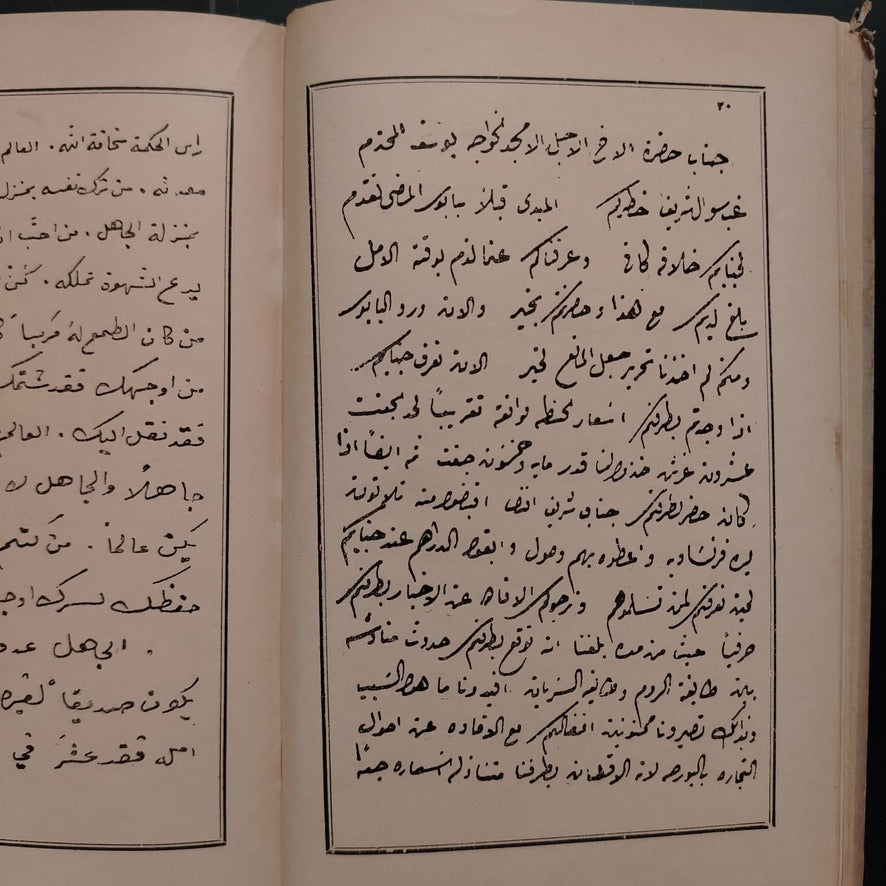 ٢٠
جناب حضرة الاخ الاجل الامجد الخواجه يوسف المحترم
غب سوال شريف خاطركم المبدى قبلاً بابور الماضى تقدم
لجنابكم خلافه كافى وعرفناكم عما لزم بوقته الامل
بلغ ليدكم مع هذا وحضرتكم بخير والان ورد البابور
ومنكم لم اخذنا تحرير جعل المانع لخير الان نعرف جنابكم
اذا وجدتم بطرفكم اسعار الحنطه توافق تقريباً لحد الجفت
عشرون غرش خذوا لنا قدر مايه وخمسون جفت ثم ايضاً اذا
كان حضر لطرفكم جناب شريف اقبضوا منه ثلاثون
ليره فرنساويه واعطوه بهم وصول وابقوا الدراهم عند جنابكم
لحين نعرفكم لمن تسلموهم ونرجوكم الافاده عن الاخبار بطرفكم
حرفياً حيث من مده بلغنا انه توقع بطرفكم حدوث مناوشه
بين طايفة الروم وطايفه السريان افيدونا ما هو السبب
وبذلك تصيرونا ممنونين افضالكم مع الافاده عن احوال
التجاره بالبورصه لان الاقطان بطرفنا متنازله اسعاره جداً
راس الحكمة مخافة الله. العالم
معدنه. من ترك نفسه بمنزلة
بمنزلة الجاهل. من احب
يدع الشهوة تملكه. كن
من كان الطمع لهُ مركباً
من اوجهك فقد شتمك
فقد نقل اليك. العالم
جاهلًا والجاهل لا
يكن عالماً. من كتم
حفظك لسرك اوجب
. الجاهل عدو
يكون صديقاً لغيره
امله فقد عثر في